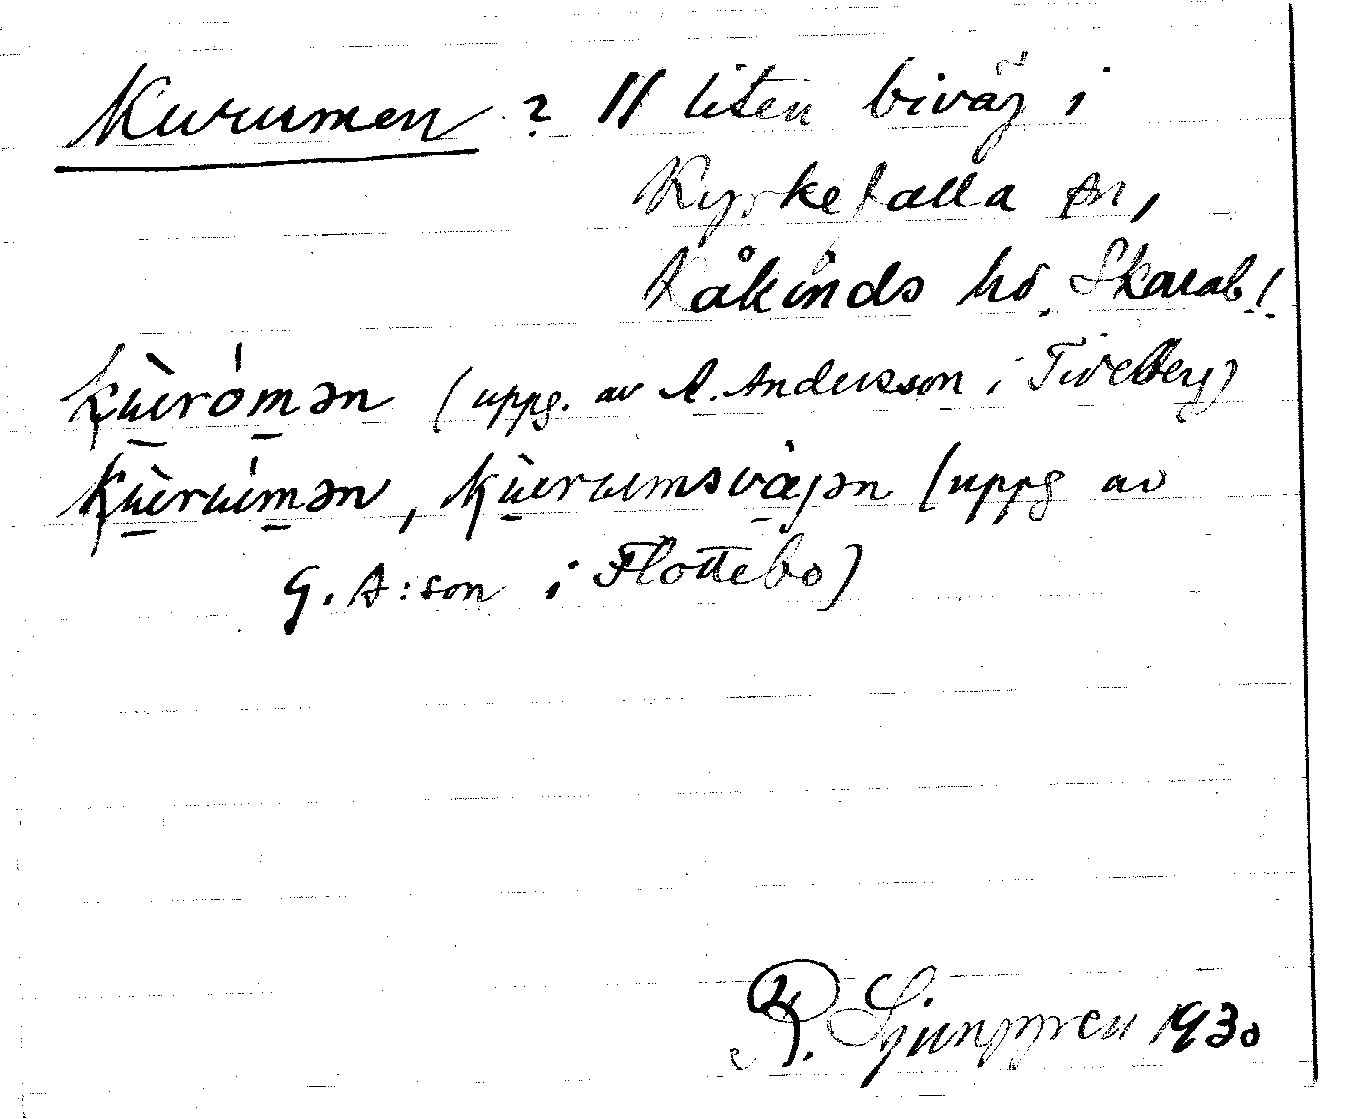 Kurumen ? // liten biväg i
Kyrkefalla sn,
Kåkinds hd. Skarab. l.
kùrómən (uppg. av A. Andersson i Tiveberg)
kùrúmən, kùrumsvägən (uppg av
G. A:son i Flottebo)
R. Ljunggren 1930